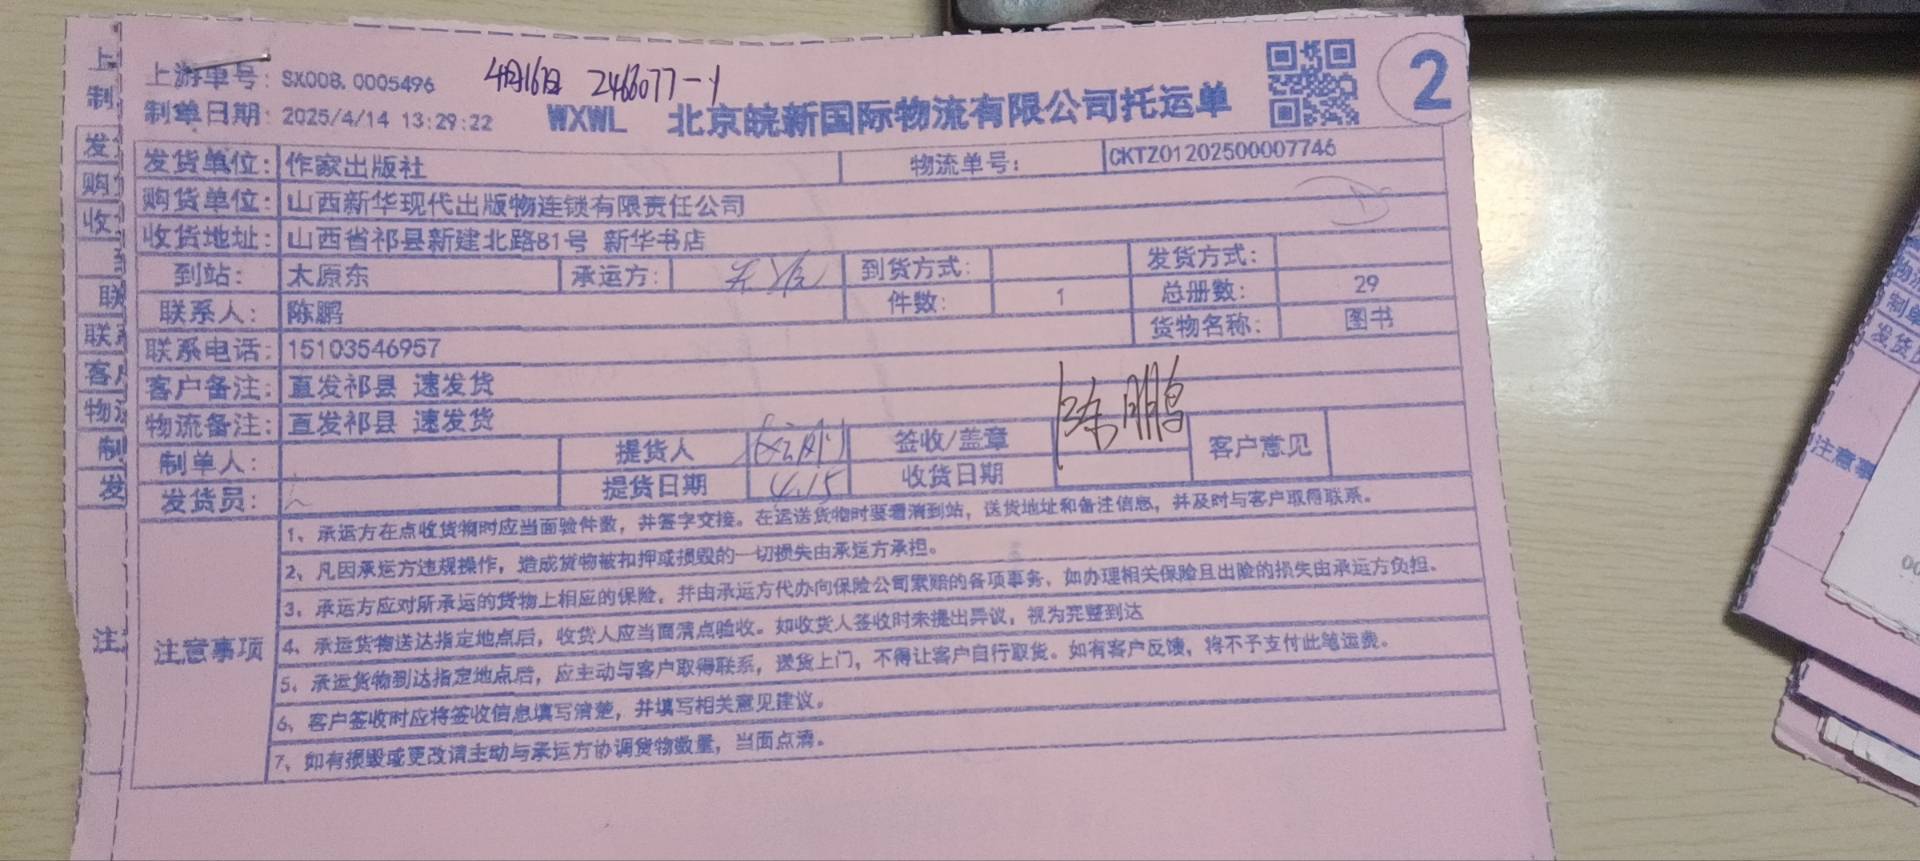 上游单号: SX008.0005496 4月16日 2466077-1
制单日期: 2025/4/14 13:29:22 WXWL 北京皖新国际物流有限公司托运单 2
发货单位: 作家出版社 物流单号: CKTZ01202500007746
购货单位: 山西新华现代出版物连锁有限责任公司
收货地址: 山西省祁县新建北路81号 新华书店
到站: 太原东 承运方: 到货方式: 发货方式:
联系人: 陈鹏 件数: 1 总册数: 29
联系电话: 15103546957 货物名称: 图书
客户备注: 直发祁县 速发货
物流备注: 直发祁县 速发货
制单人: 提货人 签收/盖章 陈鹏 客户意见
发货员: 提货日期 4.15 收货日期
注意事项
1、承运方在点收货物时应当面验件数，并签字交接。在运送货物时要看清到站，送货地址和备注信息，并及时与客户取得联系。
2、凡因承运方违规操作，造成货物被扣押或损毁的一切损失由承运方承担。
3、承运方应对所承运的货物上相应的保险，并由承运方代办向保险公司索赔的各项事务，如办理相关保险且出险的损失由承运方负担。
4、承运货物送达指定地点后，收货人应当面清点验收。如收货人签收时未提出异议，视为完整到达
5、承运货物到达指定地点后，应主动与客户取得联系，送货上门，不得让客户自行取货。如有客户反馈，将不予支付此笔运费。
6、客户签收时应将签收信息填写清楚，并填写相关意见建议。
7、如有损毁或更改请主动与承运方协调货物数量，当面点清。